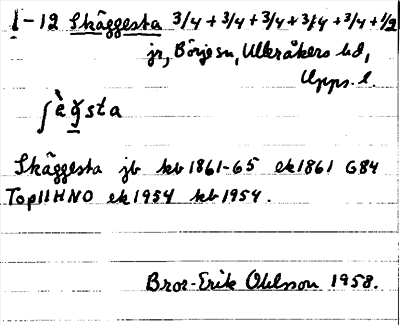 1-12 Skäggesta 3/4 + 3/4 + 3/4 + 3/4 + 3/4 + 1/2
jr, Börje sn, Ulleråkers hd,
Upps. l.
ʃὲǧsta
Skäggesta jb kb 1861-65 ek 1861 G84
Top 11HNO ek 1954 kb 1954.
Bror-Erik Ohlsson 1958.